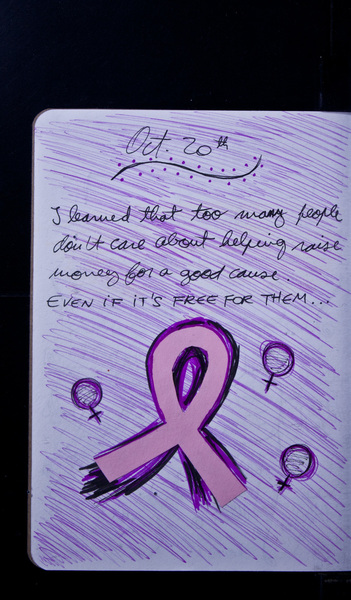 Oct. 20th
I learned that too many people
don't care about helping raise
money for a good cause.
EVEN IF IT'S FREE FOR THEM...